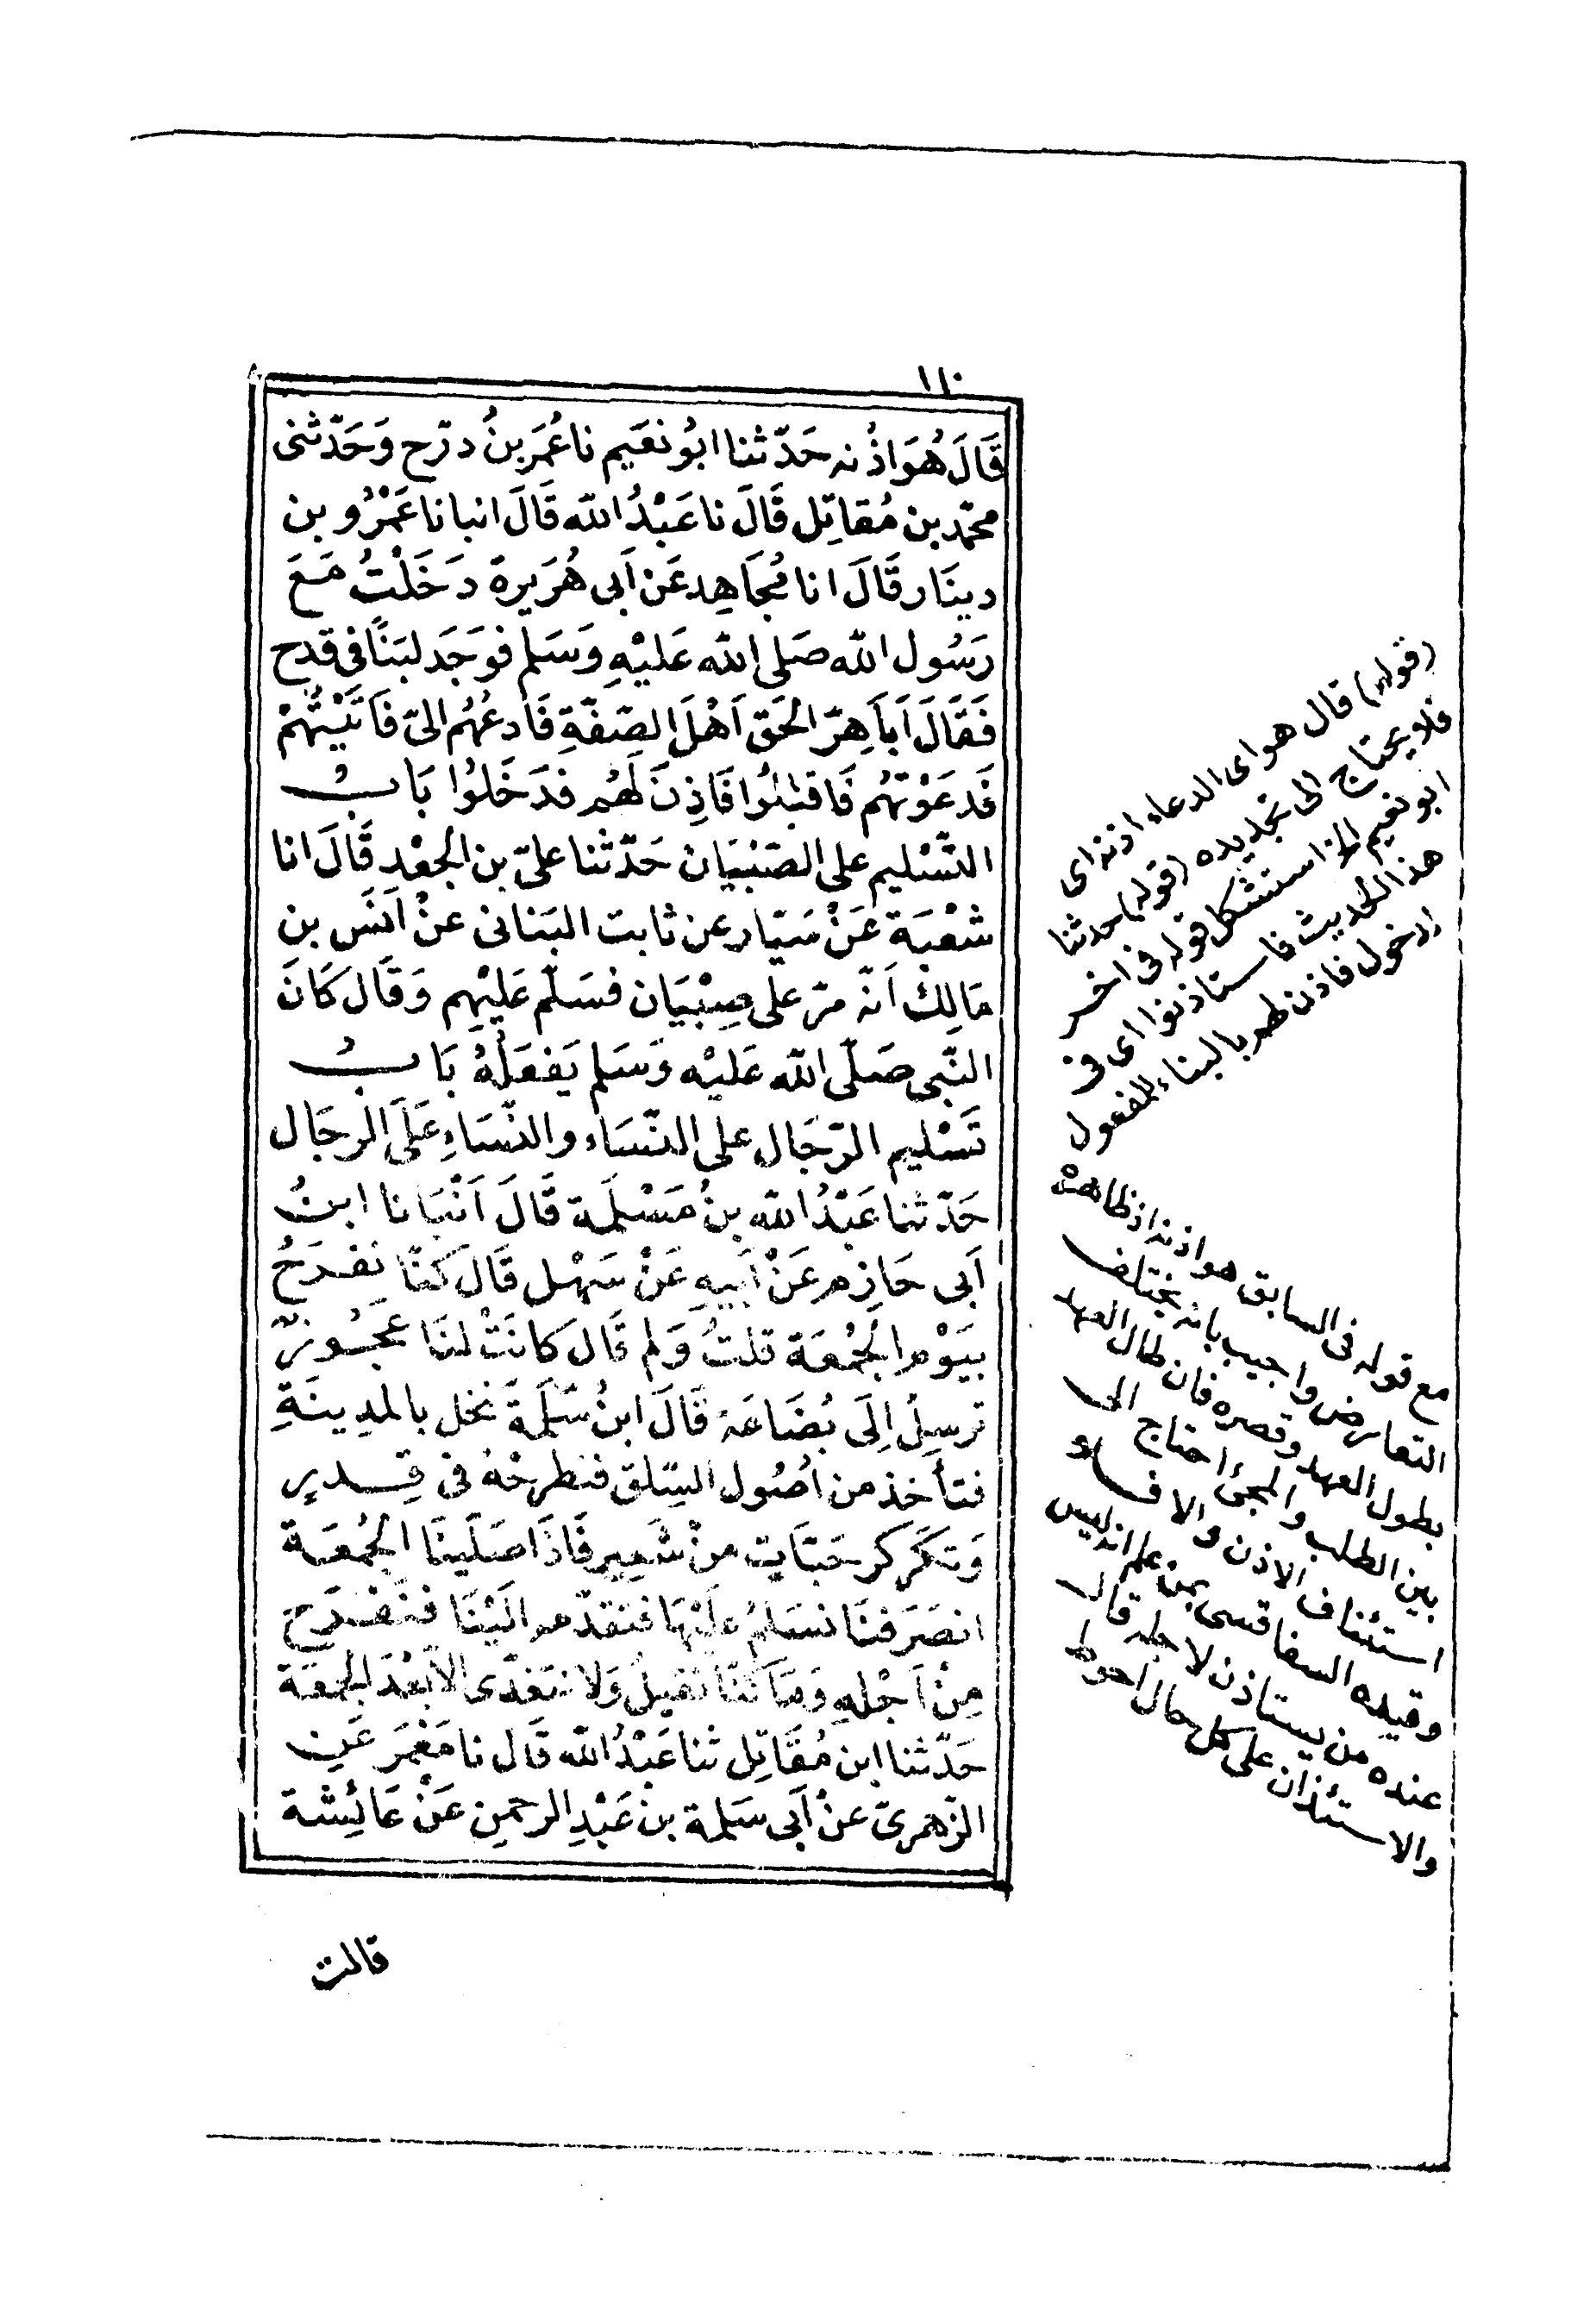 ١١٠
قَالَ هُوَ اذْنه حَدّثنا ابُو نعَيم نا عُمَر بنُ درّح وَحَدّثنى
محمّد بن مُقاتِل قَالَ نا عَبْدُ الله قَالَ انبانا عَمْرُو بن
دينَار قَالَ انا مُجَاهِد عَن اَبى هُرَيرة دَخَلْتُ مَعَ
رَسُول الله صَلى الله عَليْهِ وَسَلم فوَجَد لبَنًا فى قدح
فَقَالَ اَبا هِرّ الحَق اَهْلَ الصّفّةِ فَادعُهُم الىّ فَاتَيْتُهُمْ
فَدعَوْتهُم فَاقبَلُوا فَاذِنَ لَهُم فدَخَلُوا بَابُ
التّسْليم على الصّبْيَان حَدّثنا علىّ بن الجعْد قَالَ انا
شعْبَة عَنْ سَيّار عن ثابت البَنانى عنْ اَنَس بن
مَالِك اَنّه مرّ على صِبْيَان فسَلّم عَليْهِم وَقَال كَانَ
النّبى صَلّى الله عَليْه وَسَلم يَفعَلُهُ بَابُ
تَسْليم الرّجَال على النّسَاء والنّسَاءِ عَلَى الرجَال
حَدّثنا عَبْدُ الله بنُ مَسْلمَة قَالَ اَنْبَانا ابنُ
اَبى حَازِم عَنْ اَبيهِ عَنْ سَهْل قَال كنّا نفْرَحُ
بيَوْم الجُمُعَة قلتُ وَلم قَال كانَتْ لنَا عَجُوزٌ
ترسِلُ اِلَى بُضَاعَة قَالَ ابنُ مَسْلَمَة نخل بالمدِينَةِ
فتأخذ من اُصُول السِّلق فتطرحُهُ فى قِدرٍ
وَتكَركر حَبّاتٍ منْ شَعِير فَاذَا صَلّينَا الجُمُعَة
انصَرَفنَا نسَلمُ عَليْهَا فتقدّمه اليْنَا فنَفْرَح
مِنْ اَجْلهِ وَمَا كنّا نقيلُ وَلا نتغَدّى الا بَعْدَ الجمعَة
حَدّثنا ابن مُقَاتِل ثنا عَبْدُ الله قَال نا مَعْمَر عَنِ
الزّهرىّ عنْ اَبى سَلمة بن عَبْدِ الرحمنِ عَنْ عَائِشة
قالت
(قوله) قال هو اى الدعاء اذنه اى
فلا يحتاج الى تجديده (قوله) حدثنا
ابو نعيم الخ استشكل قوله فى اخر
هذا الحديث فاستاذنوا اى فى
الدخول فاذن لهم بالبناء للمفعول
مع قوله فى السابق هو اذنه اذ ظاهره
التعارض واجيب بانه يختلف
بطول العهد وقصره فان طال العهد
بين الطلب والمجئ احتاج الى
استئناف الاذن والا فلا
وقيده السفاقسى بمن علم انه ليس
عنده من يستاذن لاجله قال
والاستئذان على كل حال احوط